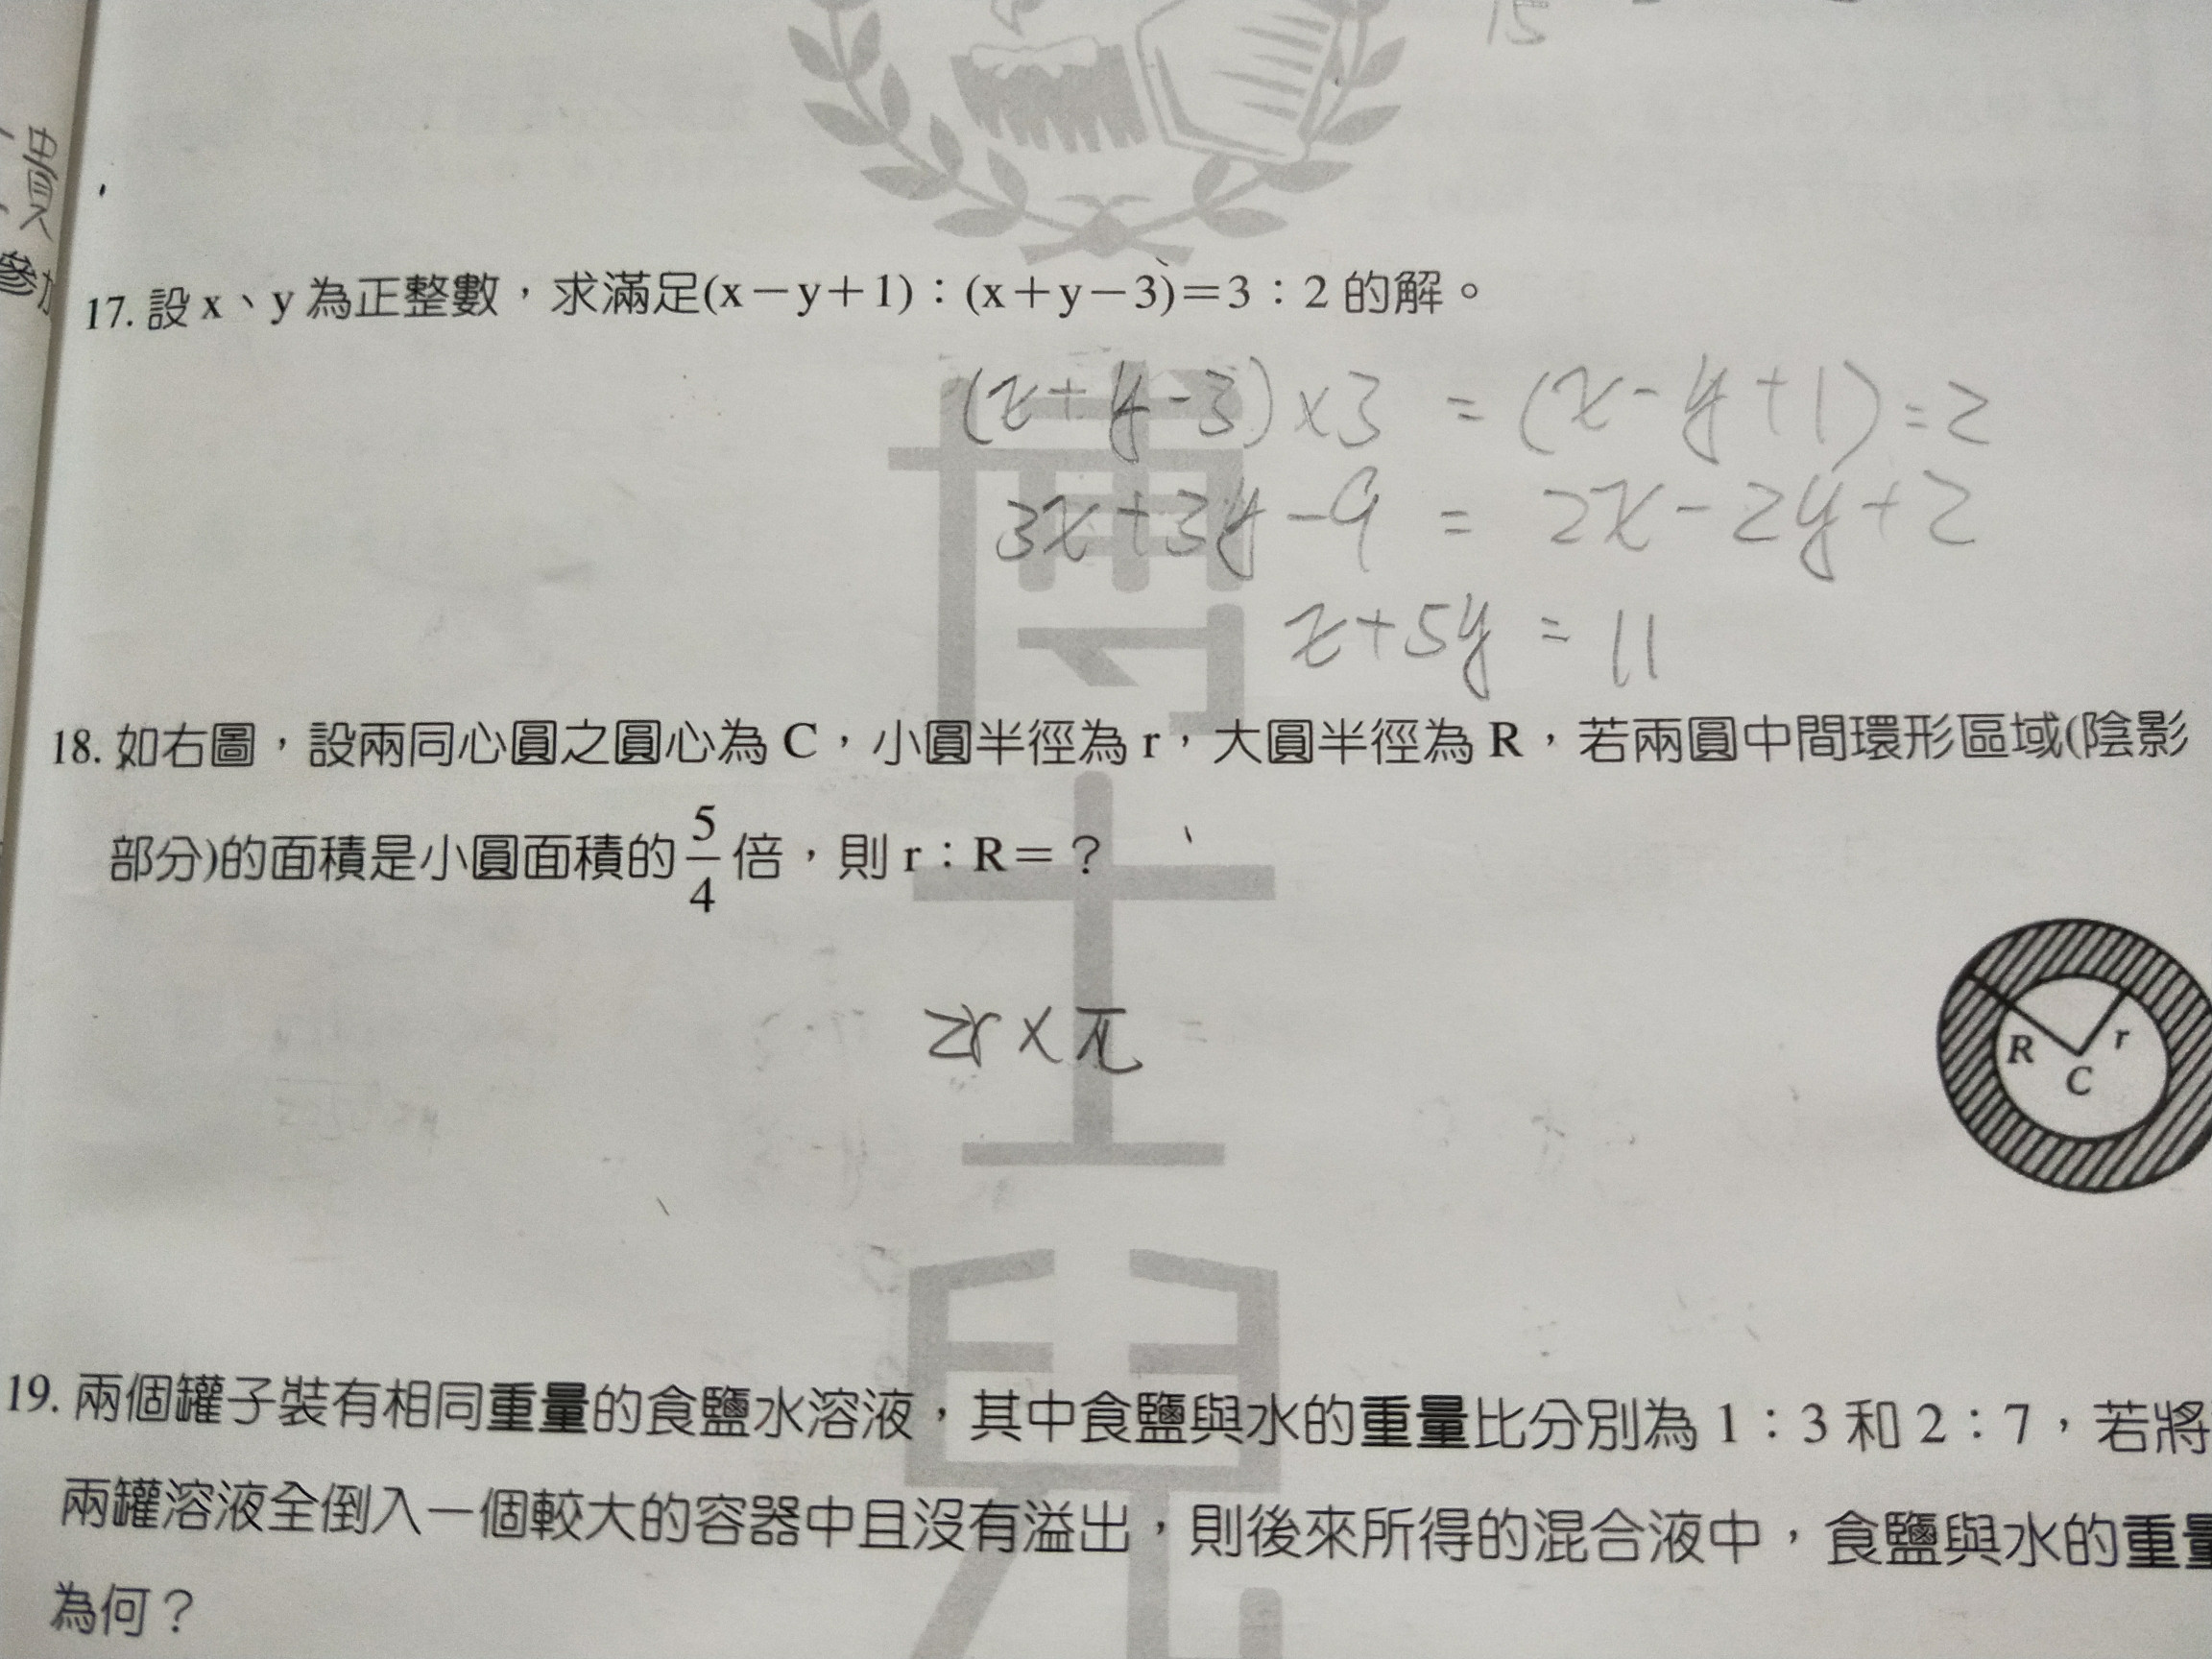 15
貴
參加
17. 設 x、y 為正整數，求滿足(x－y＋1)：(x＋y－3)＝3：2 的解。
(x+y-3)×3 = (x-y+1)=2
3x+3y-9 = 2x-2y+2
x+5y = 11
18. 如右圖，設兩同心圓之圓心為 C，小圓半徑為 r，大圓半徑為 R，若兩圓中間環形區域(陰影
部分)的面積是小圓面積的 5/4 倍，則 r：R＝？
2r×π
R r
C
19. 兩個罐子裝有相同重量的食鹽水溶液，其中食鹽與水的重量比分別為 1：3 和 2：7，若將
兩罐溶液全倒入一個較大的容器中且沒有溢出，則後來所得的混合液中，食鹽與水的重量
為何？
博士兒